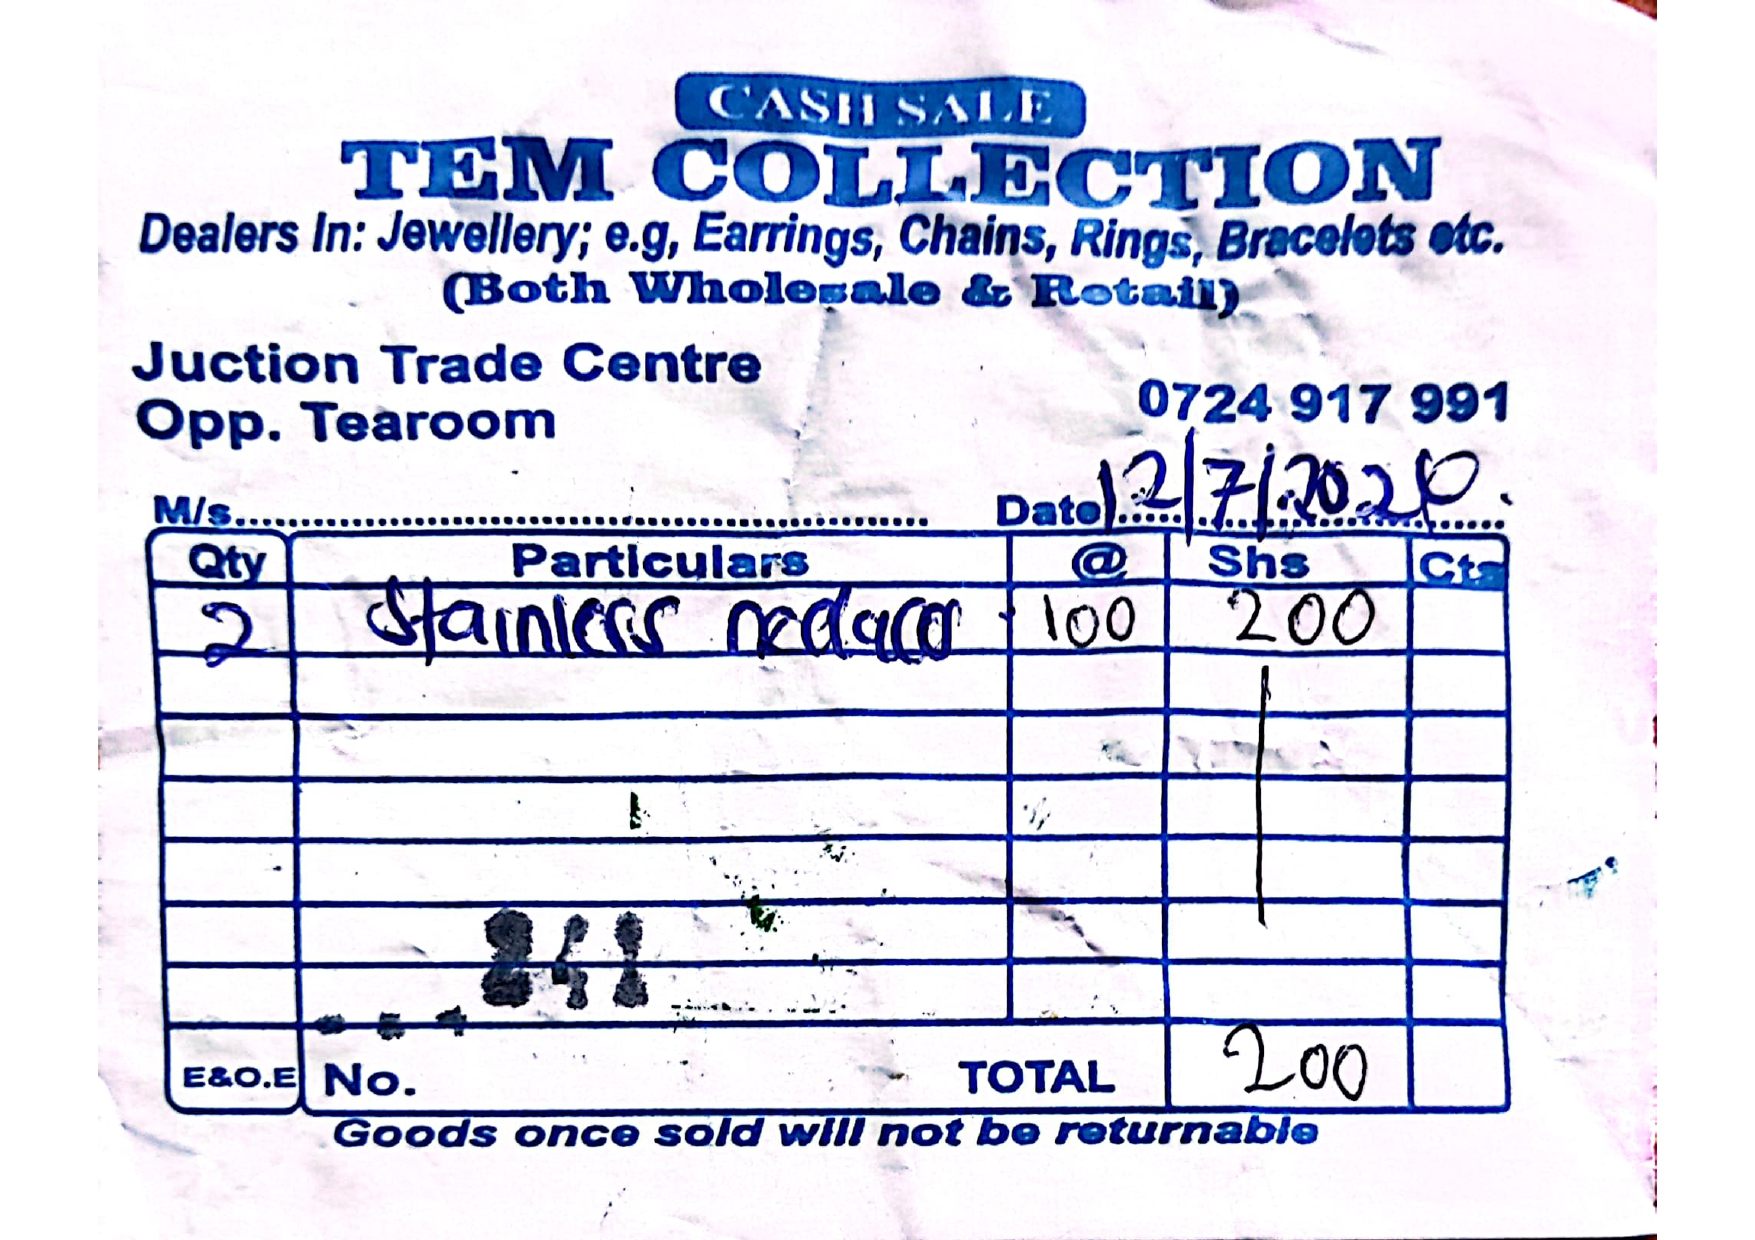 CASH SALE
TEM COLLECTION
Dealers In: Jewellery; e.g, Earrings, Chains, Rings, Bracelets etc.
(Both Wholesale & Retail)
Juction Trade Centre
Opp. Tearoom
0724 917 991
M/s. Date 12/7/2020
Qty Particulars @ Shs Cts
2 Stainless 100 200
841
E&O.E No. TOTAL 200
Goods once sold will not be returnable